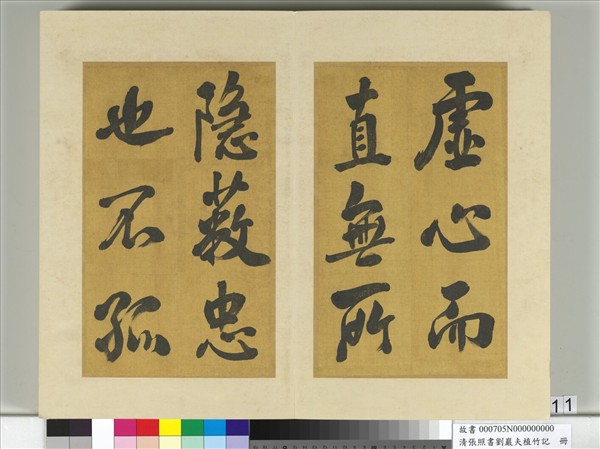 虛心而
直無所
隱蔽忠
也不孤
11
故書 000705N000000000
清張照書劉巖夫植竹記 冊